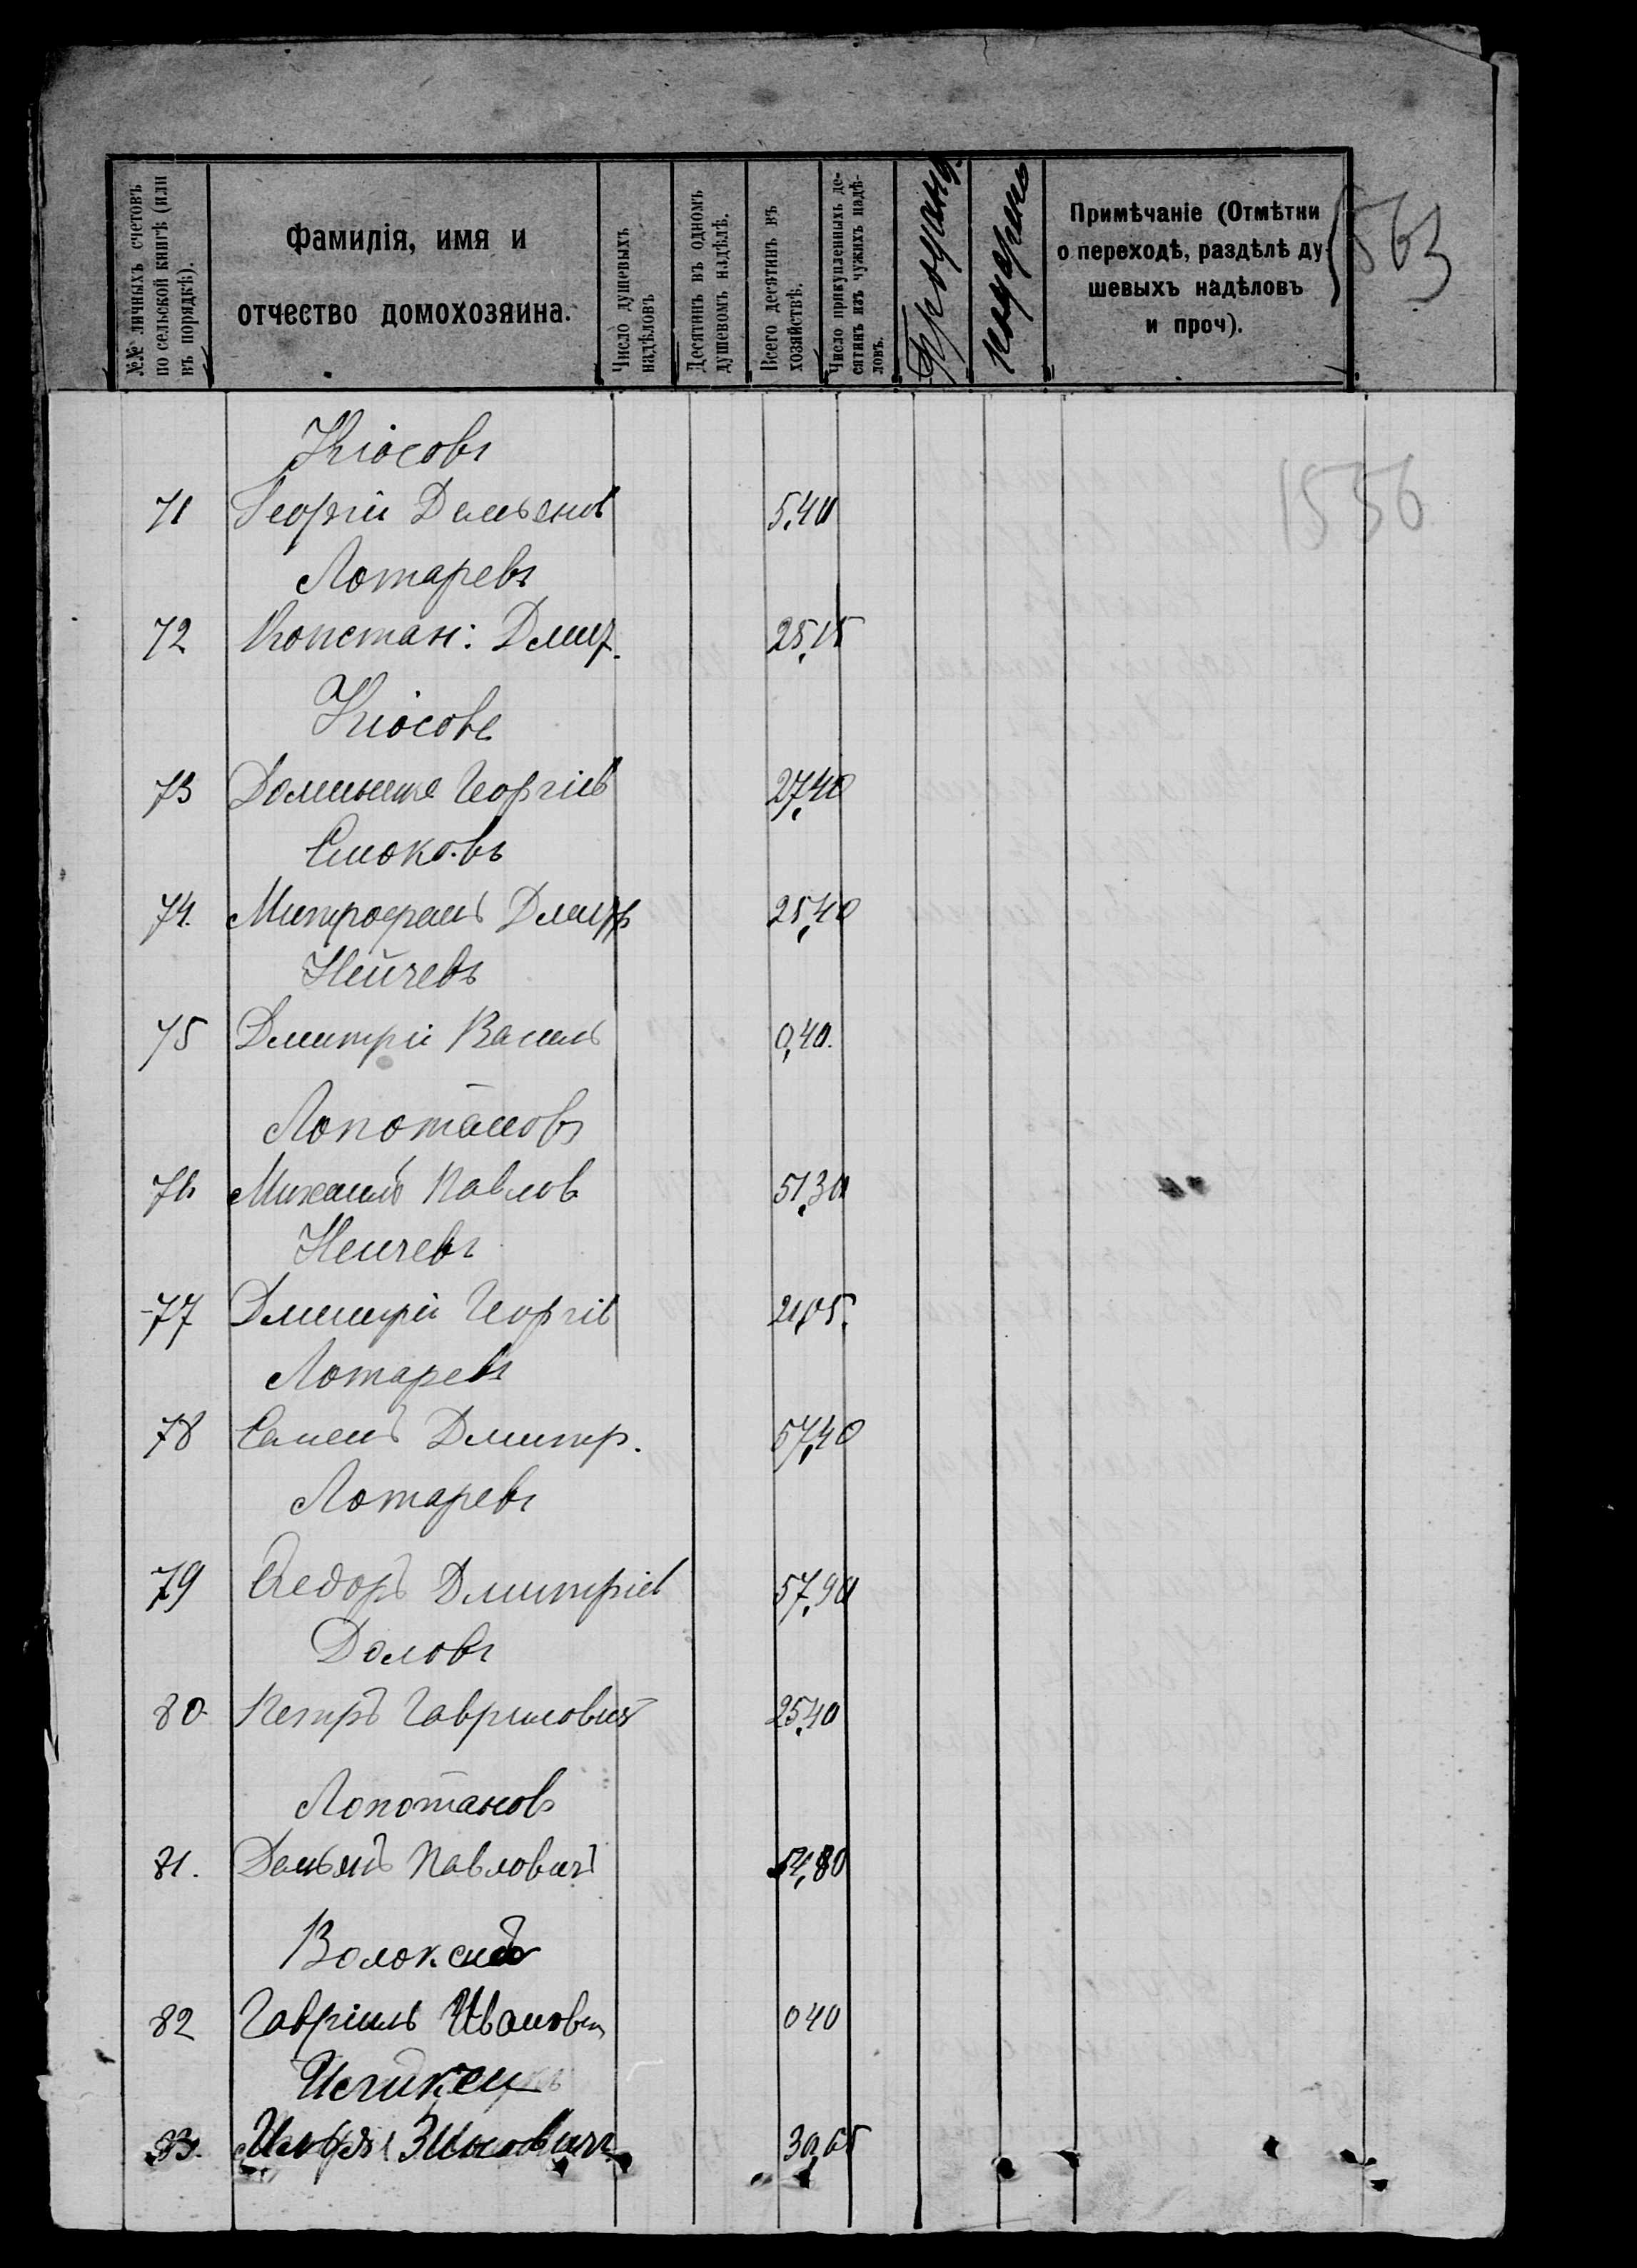 №№ личныхъ счетовъ
по сельской книгѣ (или
въ порядкѣ).
Фамилія, имя и
отчество домохозяина.
Число душевыхъ
надѣловъ
Десятинъ въ одномъ
душевомъ надѣлѣ.
Всего десятинъ въ
хозяйствѣ.
Число прикупленныхъ де-
сятинъ изъ чужихъ надѣ-
ловъ.
Примѣчаніе (Отмѣтки
о переходѣ, раздѣлѣ ду-
шевыхъ надѣловъ
и проч).
563
1556
Кіосовъ
71 Георгій Демьянов 5,40
Лотаревъ
72 Констан: Дмит. 25,15
Кіосовъ
73 Георгіев 27,40
Стоковъ
74. Митрофанъ Дмитр 25,40
Нейчевъ
75 Дмитрій Васил 0,40.
Лопотановъ
76 Михаилъ Павлов 51,30
Нейчевъ
77 Дмитрій Георгіев 21,05.
Лотаревъ
78 Семенъ Дмитр. 57,40
Лотаревъ
79 Ѳедоръ Дмитріев 57,90
Доловъ
80 Петръ Гавриловичъ 25,40
Лопотановъ
81. Демьянъ Павловичъ 54,80
82 Гавріилъ Иванович 040
83. 30,65